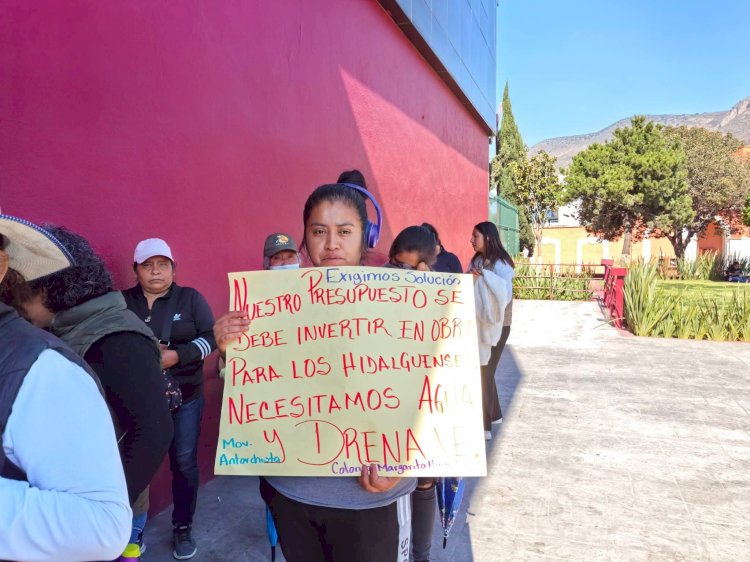 Exigimos Solución
Nuestro Presupuesto se
debe invertir en obra
para los Hidalguense
Necesitamos Agua
y Drenaje.
Mov.
Antorchista
Colonia Margarita